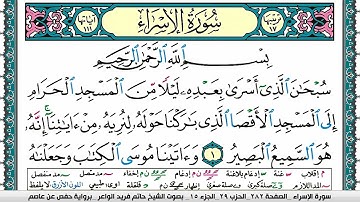 سُورَةُ الإِسْرَاءِ
آياتها ١١١
ترتيبها ١٧
بِسْمِ ٱللَّهِ ٱلرَّحْمَٰنِ ٱلرَّحِيمِ
سُبْحَٰنَ ٱلَّذِىٓ أَسْرَىٰ بِعَبْدِهِۦ لَيْلًا مِّنَ ٱلْمَسْجِدِ ٱلْحَرَامِ
إِلَى ٱلْمَسْجِدِ ٱلْأَقْصَا ٱلَّذِى بَٰرَكْنَا حَوْلَهُۥ لِنُرِيَهُۥ مِنْ ءَايَٰتِنَآ ۚ إِنَّهُۥ
هُوَ ٱلسَّمِيعُ ٱلْبَصِيرُ ١ وَءَاتَيْنَا مُوسَى ٱلْكِتَٰبَ وَجَعَلْنَٰهُ
سورة الإسراء الصفحة ٢٨٢ الحزب ٢٩ الجزء ١٥ بصوت الشيخ حاتم فريد الواعر برواية حفص عن عاصم